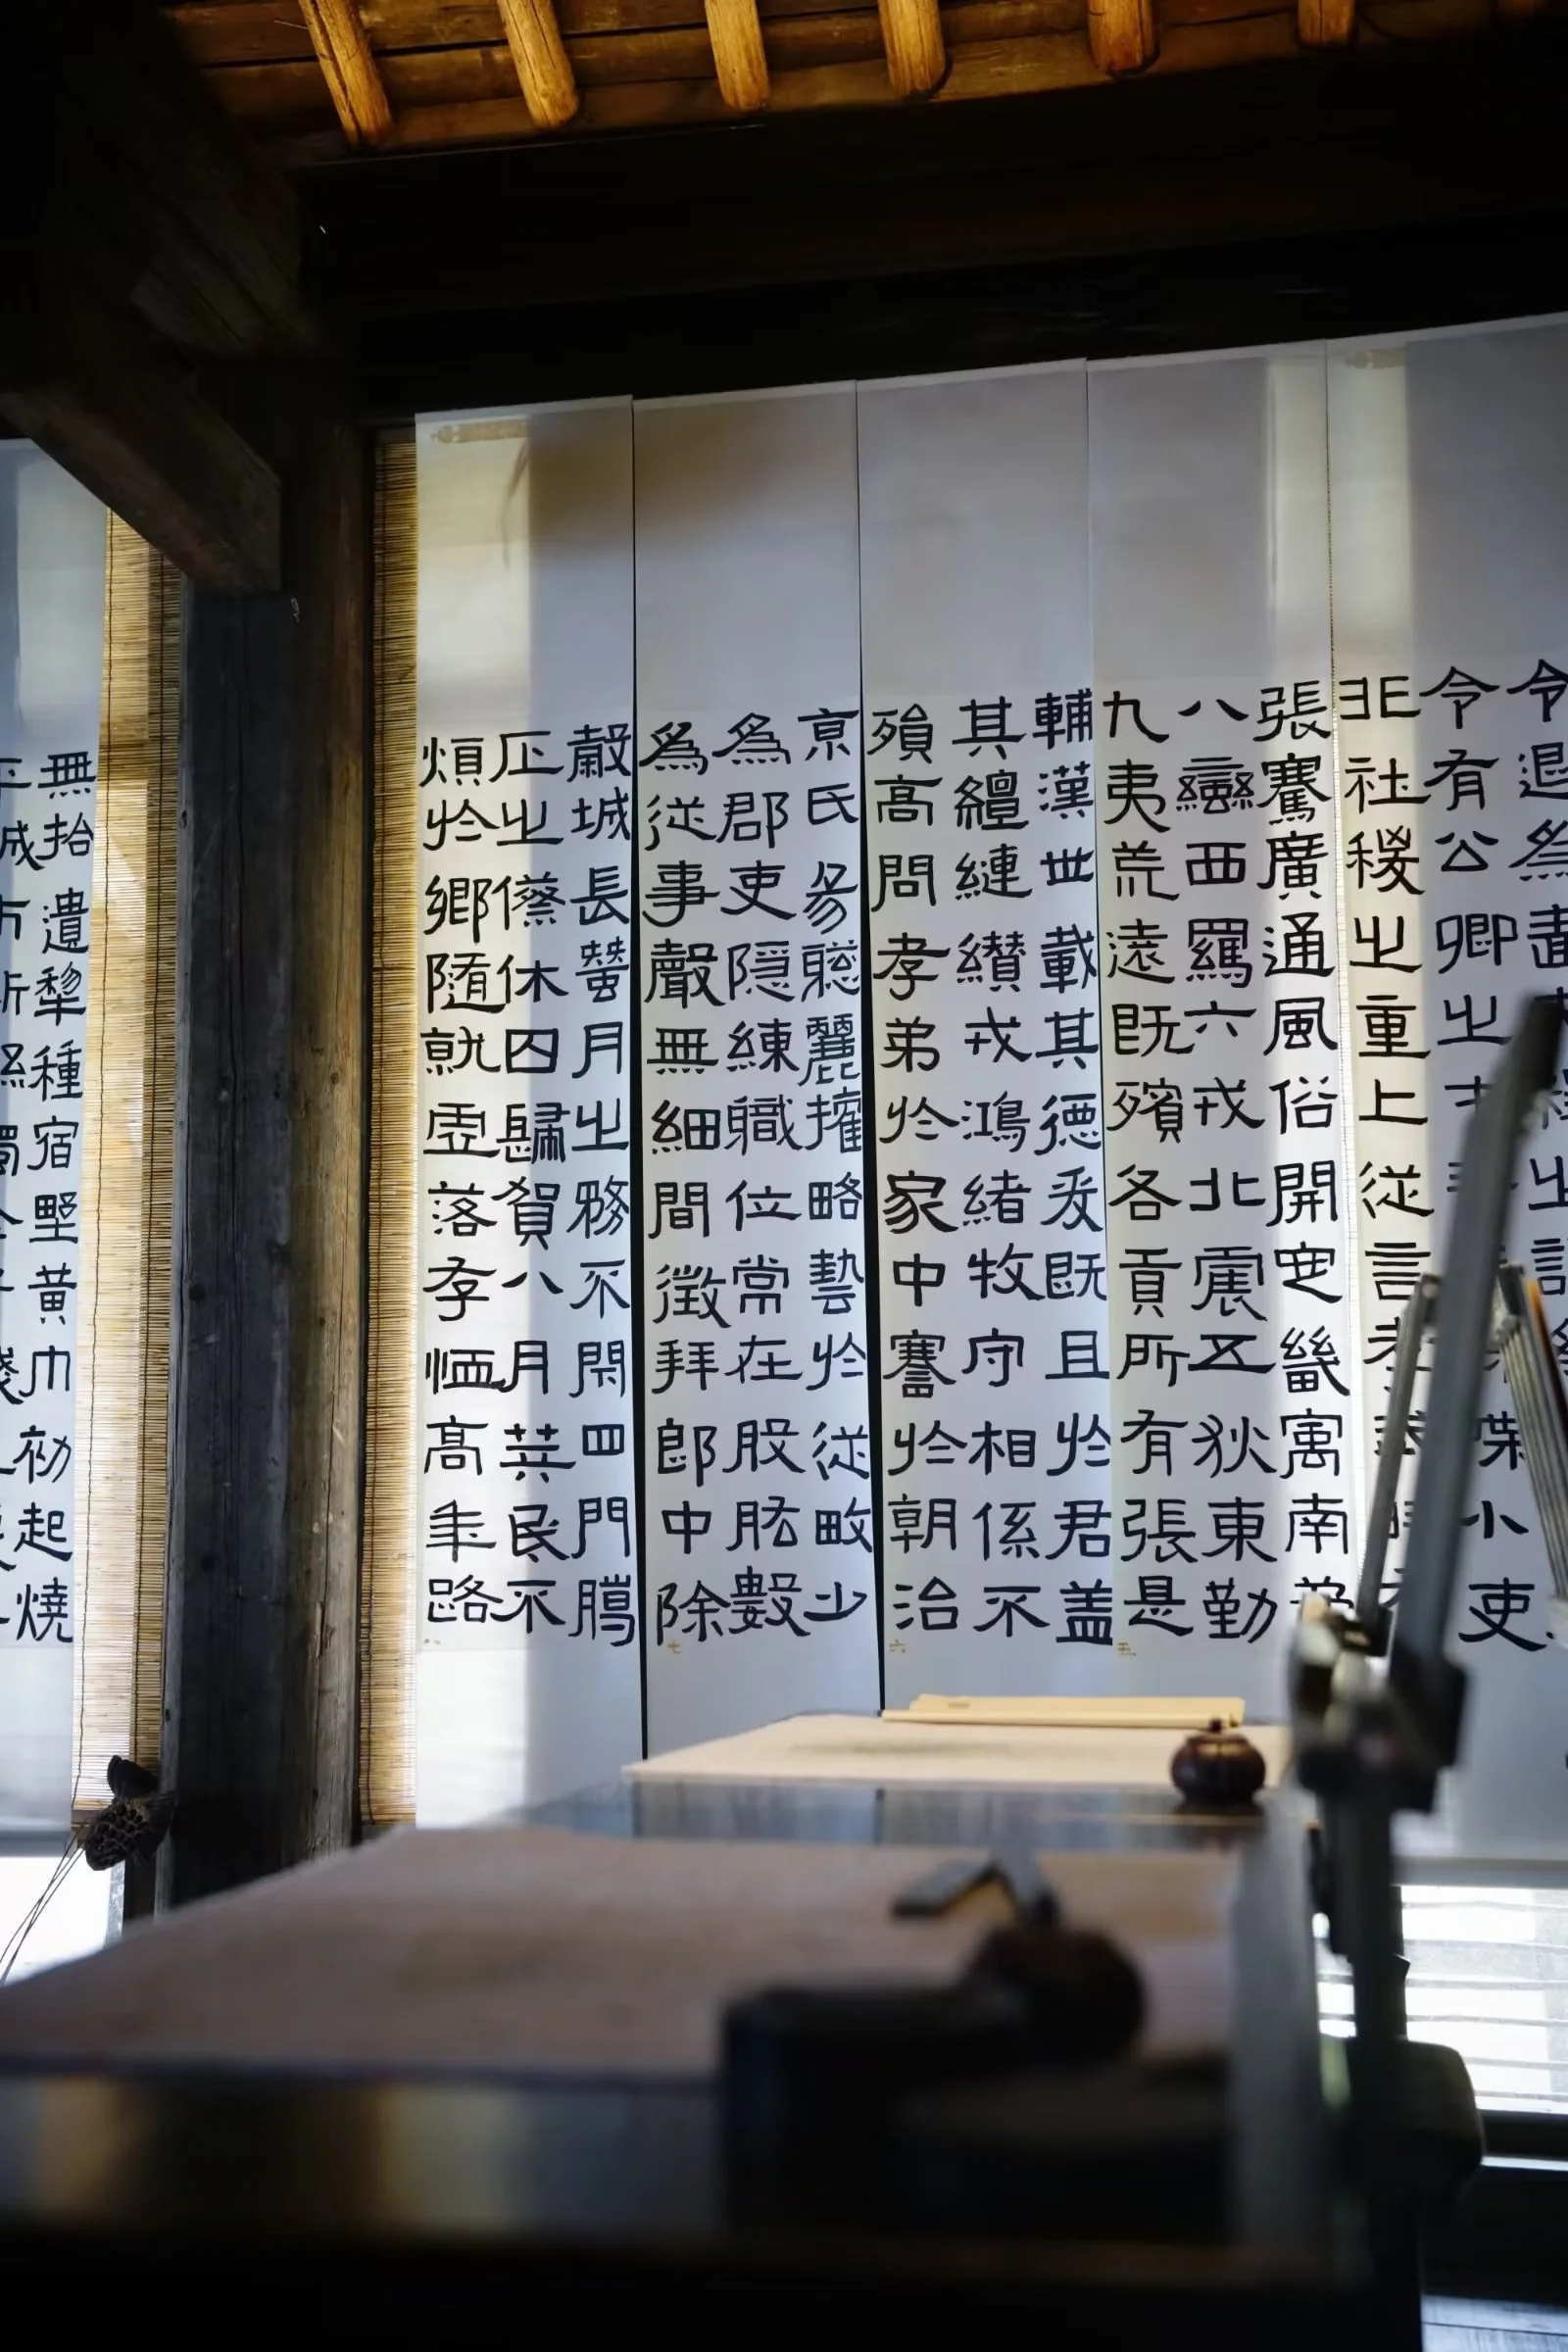 令退為嗇
令有公卿之小吏
非社稷之重上從言孝
張騫廣通風俗開定畿寓南
八蠻西羈六戎北震五狄東勤
九夷荒遠既殯各貢所有張是
輔漢世載其德爰既且於君盖
其繵縺纘戎鴻緒牧守相係不
殞高問孝弟於家中謇於朝治
京氏易聰麗權略藝於從畋少
為郡吏隱練職位常在股肱數
為從事聲無細間徵拜郎中除
穀城長蠶月之務不閉四門臘
正之僚休囚歸賀八月筭民不
煩於鄉隨就虛落存恤高年路
無拾遺犁種宿野黃巾初起燒
平城市斯縣獨全子賤